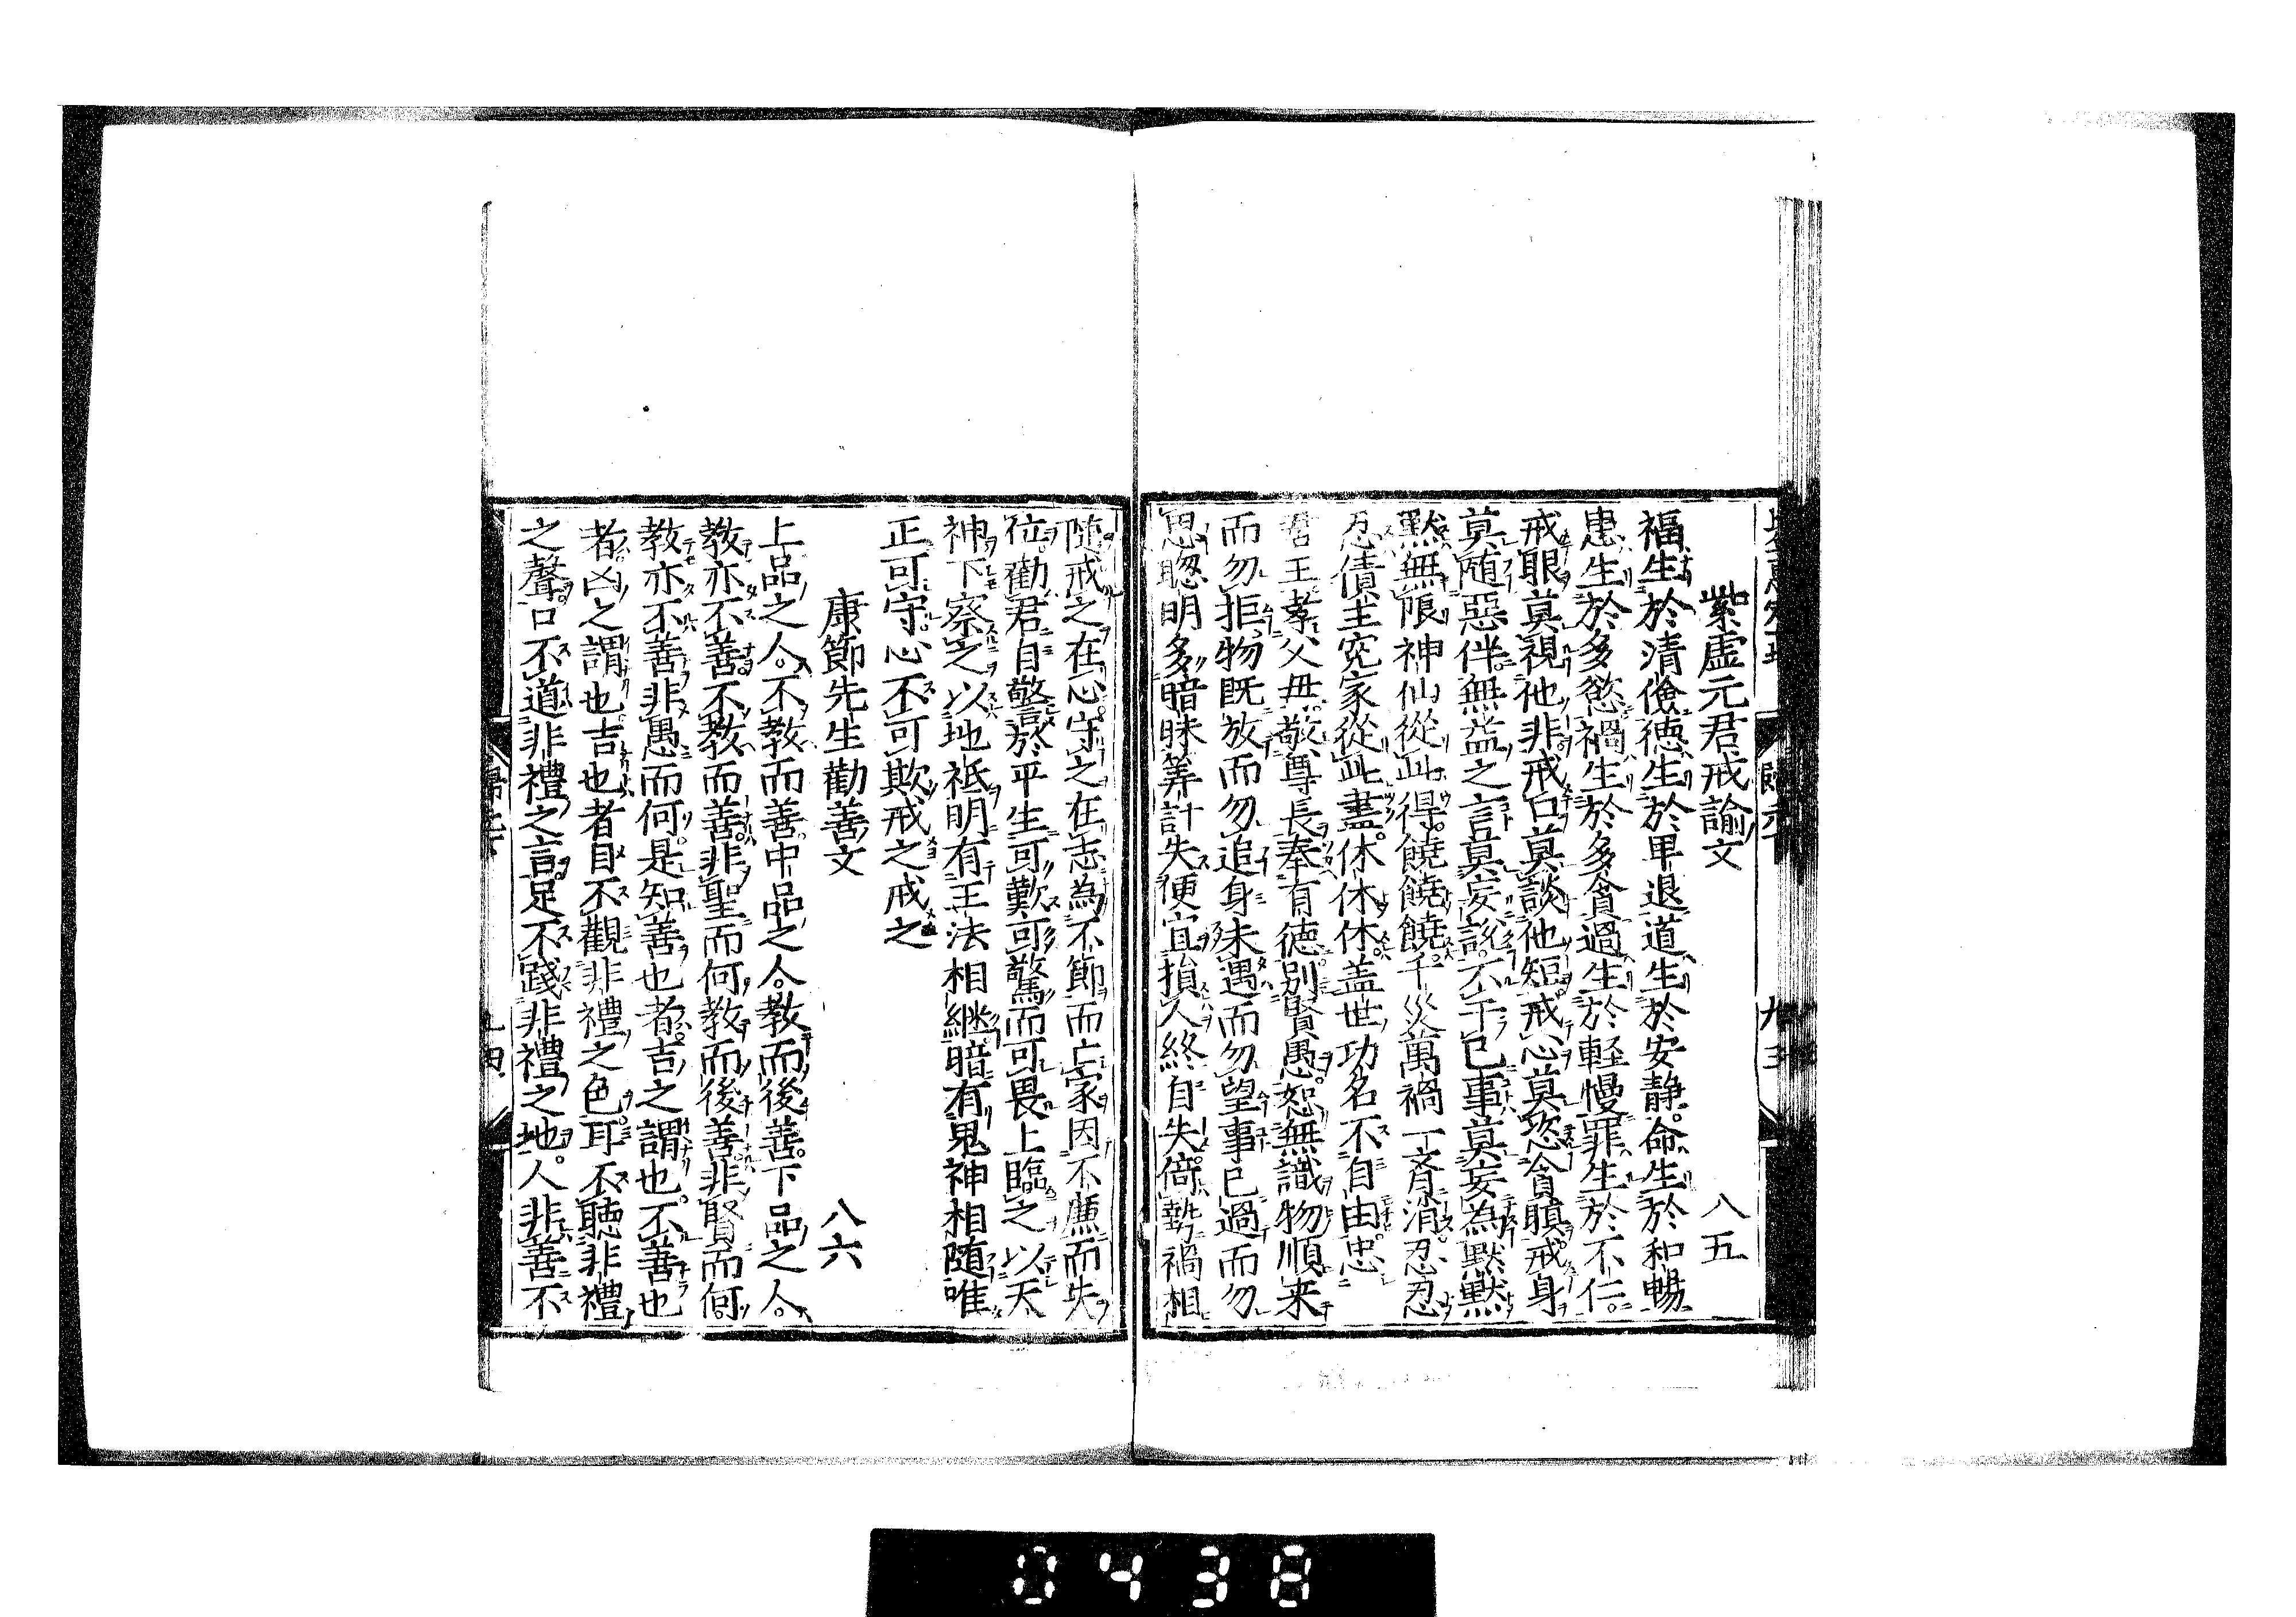 紫虛元君戒諭文 八五
福生於清儉德生於卑退道生於安静命生於和暢
患生於多慾禍生於多貪過生於輕慢罪生於不仁
戒眼莫視他非戒口莫談他短戒心莫恣貪瞋戒身
莫随惡伴無益之言莫妄説不干己事莫妄為默默
默無限神仙從此得饒饒饒千災萬禍一齊消忍忍
忍債主寃家從此盡休休休盖世功名不自由忠
君王孝父母敬尊長奉有德別賢愚恕無識物順来
而勿拒物既放而勿追身未遇而勿望事已過而勿
思聰明多暗昧筭計失便宜損人終自失倚勢禍相
随戒之在心守之在志為不節而亡家因不廉而失
位勸君自警於平生可歎可驚而可畏上臨之以天
神下察之以地祇明有王法相継暗有鬼神相随唯
正可守心不可欺戒之戒之
康節先生勸善文 八六
上品之人不教而善中品之人教而後善下品之人
教亦不善不教而善非聖而何教而後善非賢而何
教亦不善非愚而何是知善也者吉之謂也不善也
者凶之謂也吉也者目不觀非禮之色耳不聽非禮
之聲口不道非禮之言足不踐非禮之地人非善不
0438